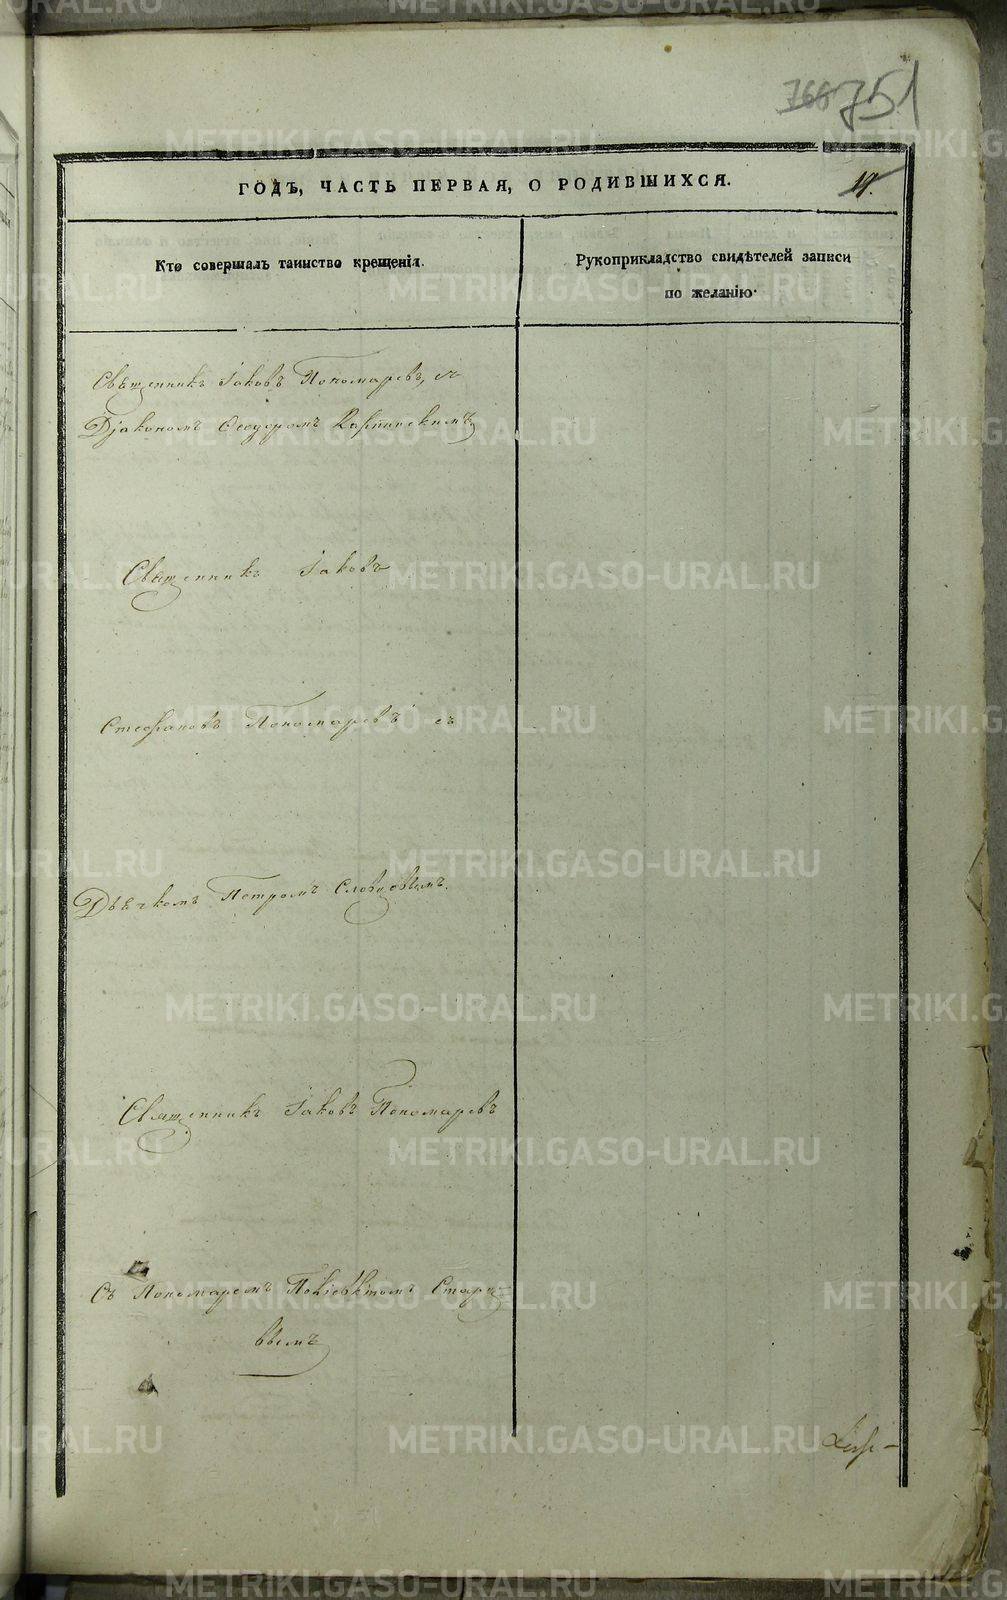 768 751
ГОДЪ, ЧАСТЬ ПЕРВАЯ, О РОДИВШИХСЯ.
Кто совершалъ таинство крещенія.
Рукоприкладство свидѣтелей записи
по желанію.
Священникъ Іаковъ Пономаревъ, съ
Діакономъ Ѳеодоромъ Карпинскимъ
Священникъ Іаковъ
Стефановъ Пономаревъ съ
Дьячкомъ Петромъ Словцовымъ.
Священникъ Іаковъ Пономаревъ
Съ Пономаремъ
METRIKI.GASO-URAL.RU